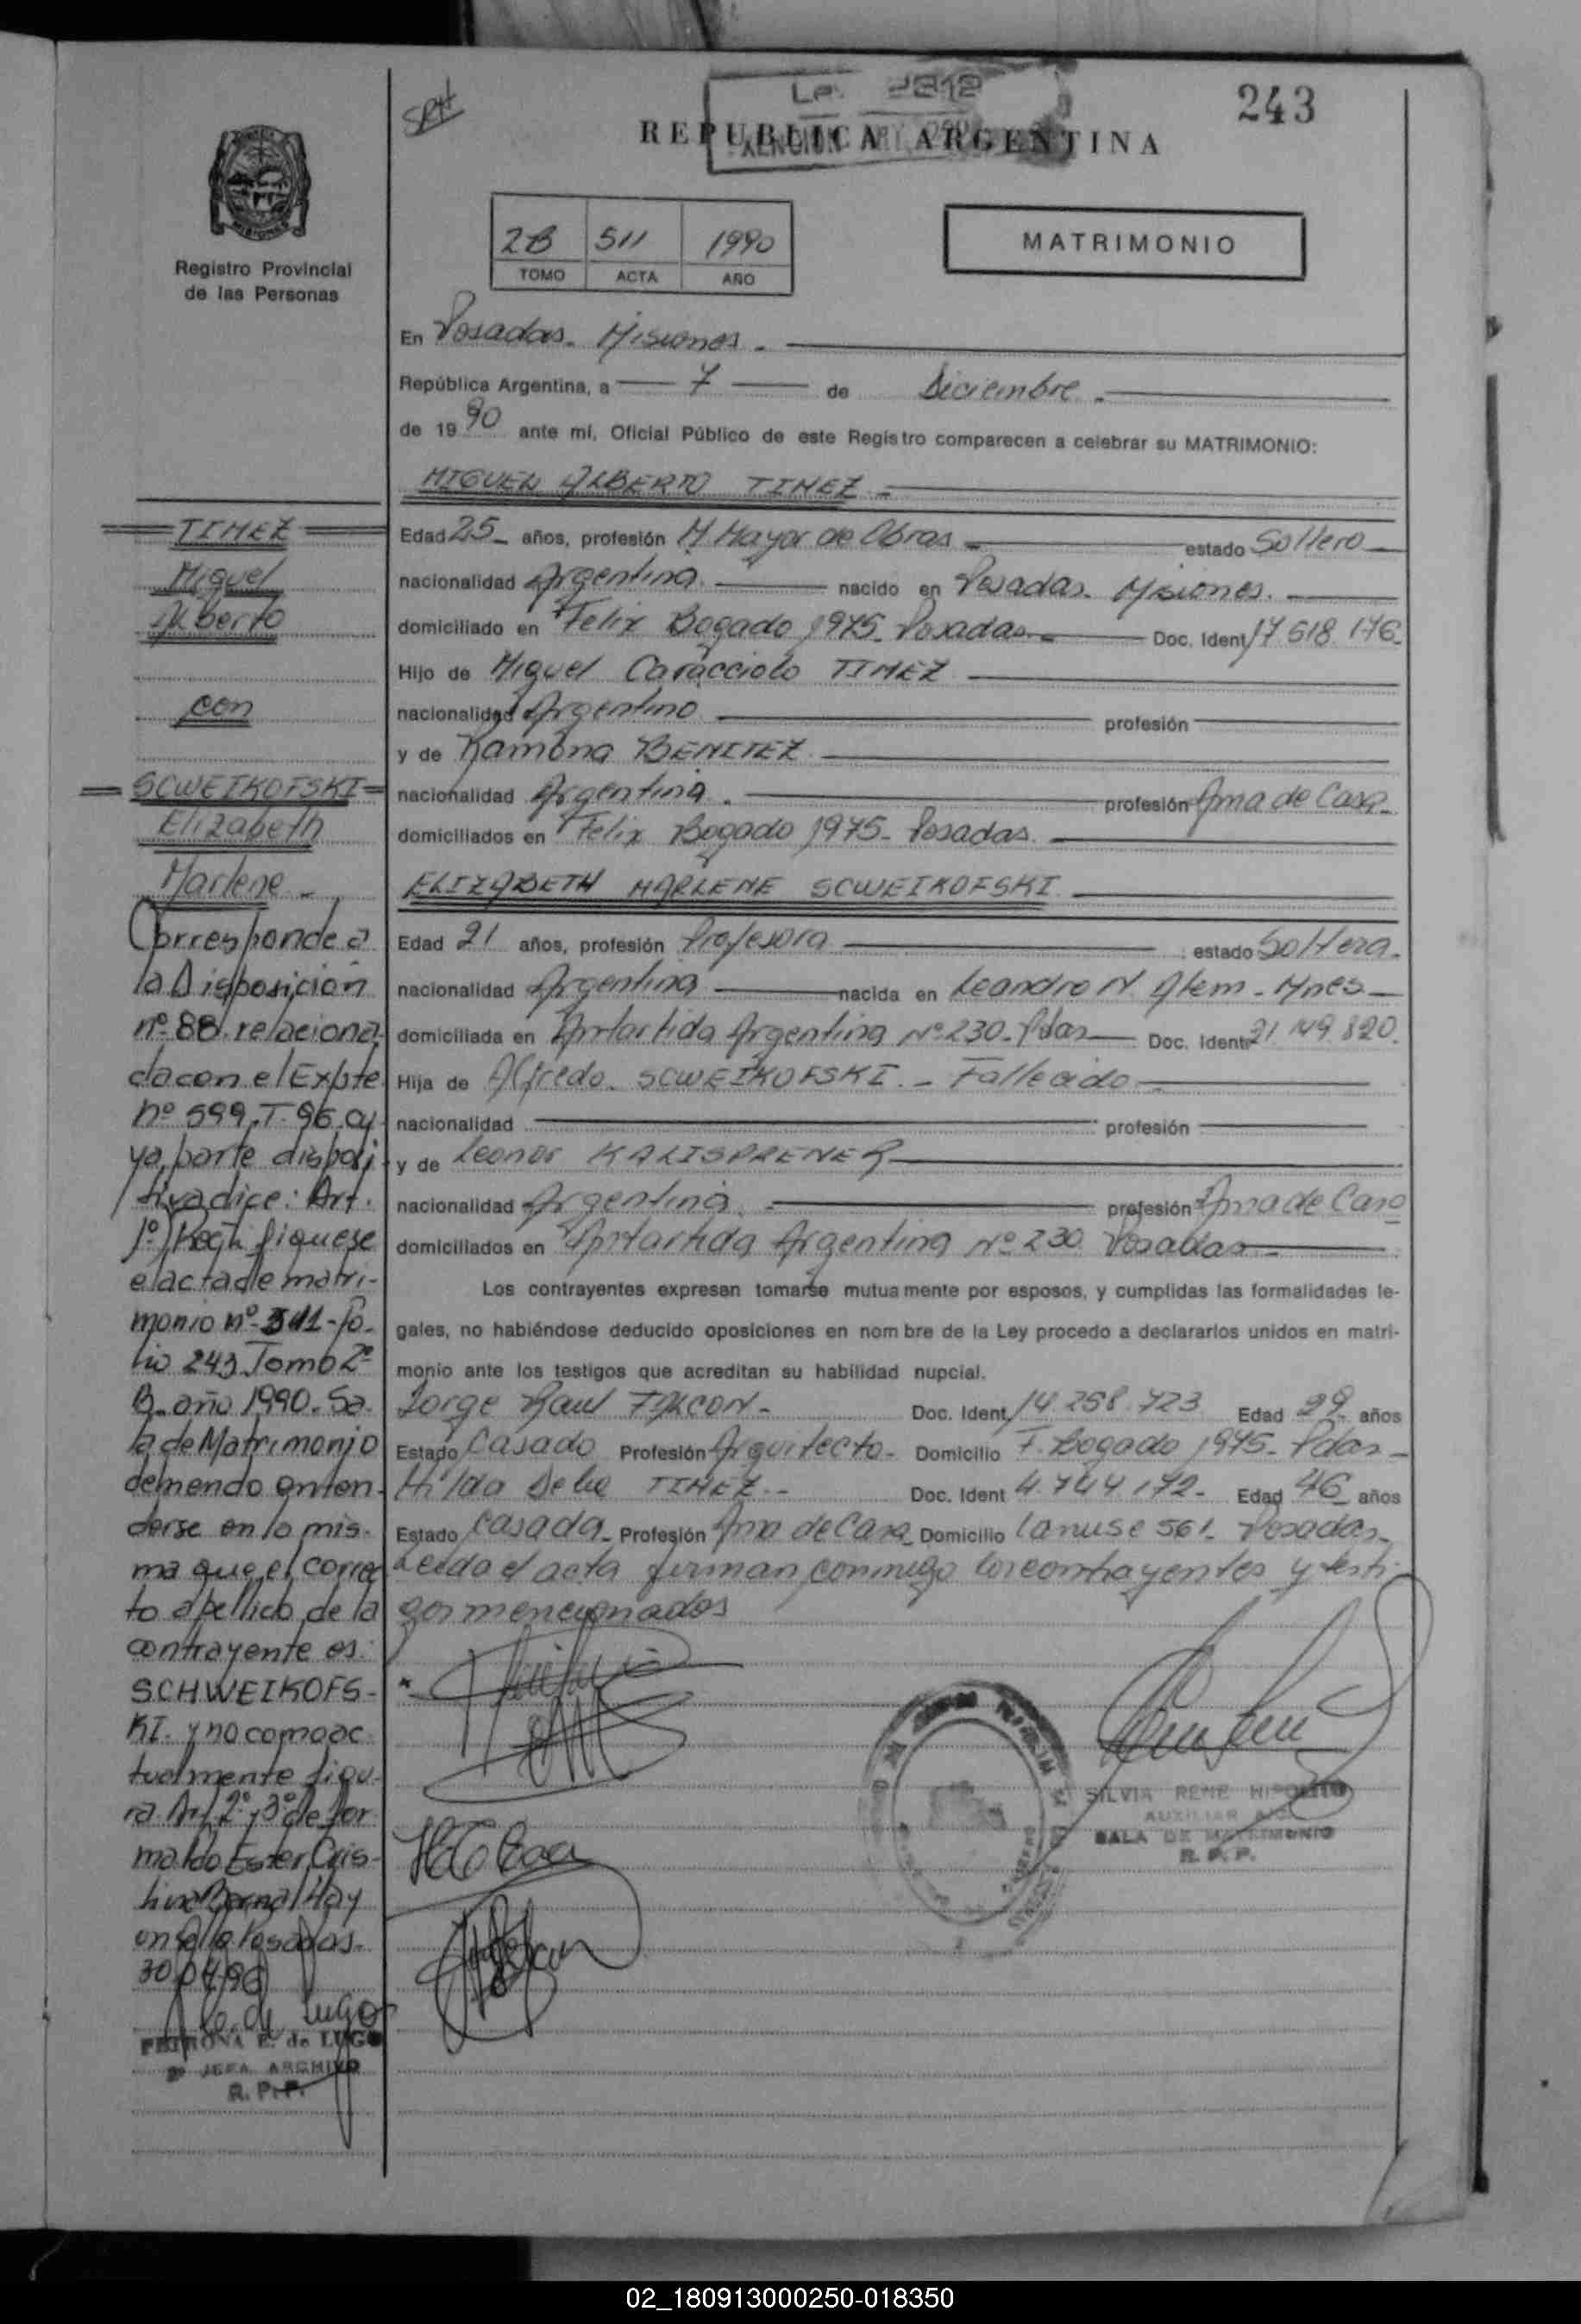 243
REPUBLICA ARGENTINA
2B 511 1990
TOMO ACTA AÑO
MATRIMONIO
Registro Provincial
de las Personas
En Posadas. Misiones.
República Argentina, a 7 de Diciembre.
de 1990 ante mí, Oficial Público de este Registro comparecen a celebrar su MATRIMONIO:
MIGUEL ALBERTO TIMEZ
Edad 25 años, profesión M. Mayor de Obras estado Soltero
nacionalidad Argentina nacido en Posadas. Misiones.
domiciliado en Felix Bogado 1975. Posadas Doc. Ident 17.618.176
Hijo de Miguel Caracciolo TIMEZ
nacionalidad Argentino profesión
y de Ramona BENITEZ
nacionalidad Argentina. profesión Ama de Casa
domiciliados en Felix Bogado 1975. Posadas.
ELIZABETH MARLENE SCWEIKOFSKI
Edad 21 años, profesión Profesora estado Soltera.
nacionalidad Argentina nacida en Leandro N. Alem - Mnes
domiciliada en Antartida Argentina Nº 230. Pdas Doc. Ident 21.149.820.
Hija de Alfredo SCWEIKOFSKI. - Fallecido
nacionalidad profesión
y de Leonor KALISPRENER
nacionalidad Argentina. profesión Ama de Casa
domiciliados en Antartida Argentina Nº 230 Posadas
Los contrayentes expresan tomarse mutuamente por esposos, y cumplidas las formalidades le-
gales, no habiéndose deducido oposiciones en nombre de la Ley procedo a declararlos unidos en matri-
monio ante los testigos que acreditan su habilidad nupcial.
Jorge Raul FALCON - Doc. Ident 14.258.723 Edad 29 años
Estado Casado Profesión Arquitecto - Domicilio F. Bogado 1975 - Pdas -
Hilda TIMEZ - Doc. Ident 4.744.172 - Edad 46 años
Estado Casada - Profesión Ama de Casa Domicilio Lanuse 561 - Posadas -
Leida el acta firman conmigo los contrayentes y testi-
gos mencionados
SILVIA RENE HIPOLITO
AUXILIAR
SALA DE MATRIMONIO
R. P. P.
TIMEZ
Miguel
Alberto
con
SCWEIKOFSKI
Elizabeth
Marlene -
Corresponde a
la Disposición
nº 88. relaciona-
da con el Expte
nº 599.T-96.cu
ya parte disposi-
tiva dice: Art.
1º) Rectifiquese
el acta de matri-
monio nº 511-fo-
lio 243 Tomo 2º
B. año 1990. Sa-
la de Matrimonio
demendo enten-
derse en la mis-
ma que el correc
to apellido de la
contrayente es:
SCHWEIKOFS-
KI. y no como ac-
tualmente figu-
ra. Art. 2º y 3º de for-
ma. Ldo Ester Cris-
tina Bernal Hay
un sello Posadas.
30/04/96
PETRONA E. de LUGO
JEFA ARCHIVO
R. P. P.
02_180913000250-018350